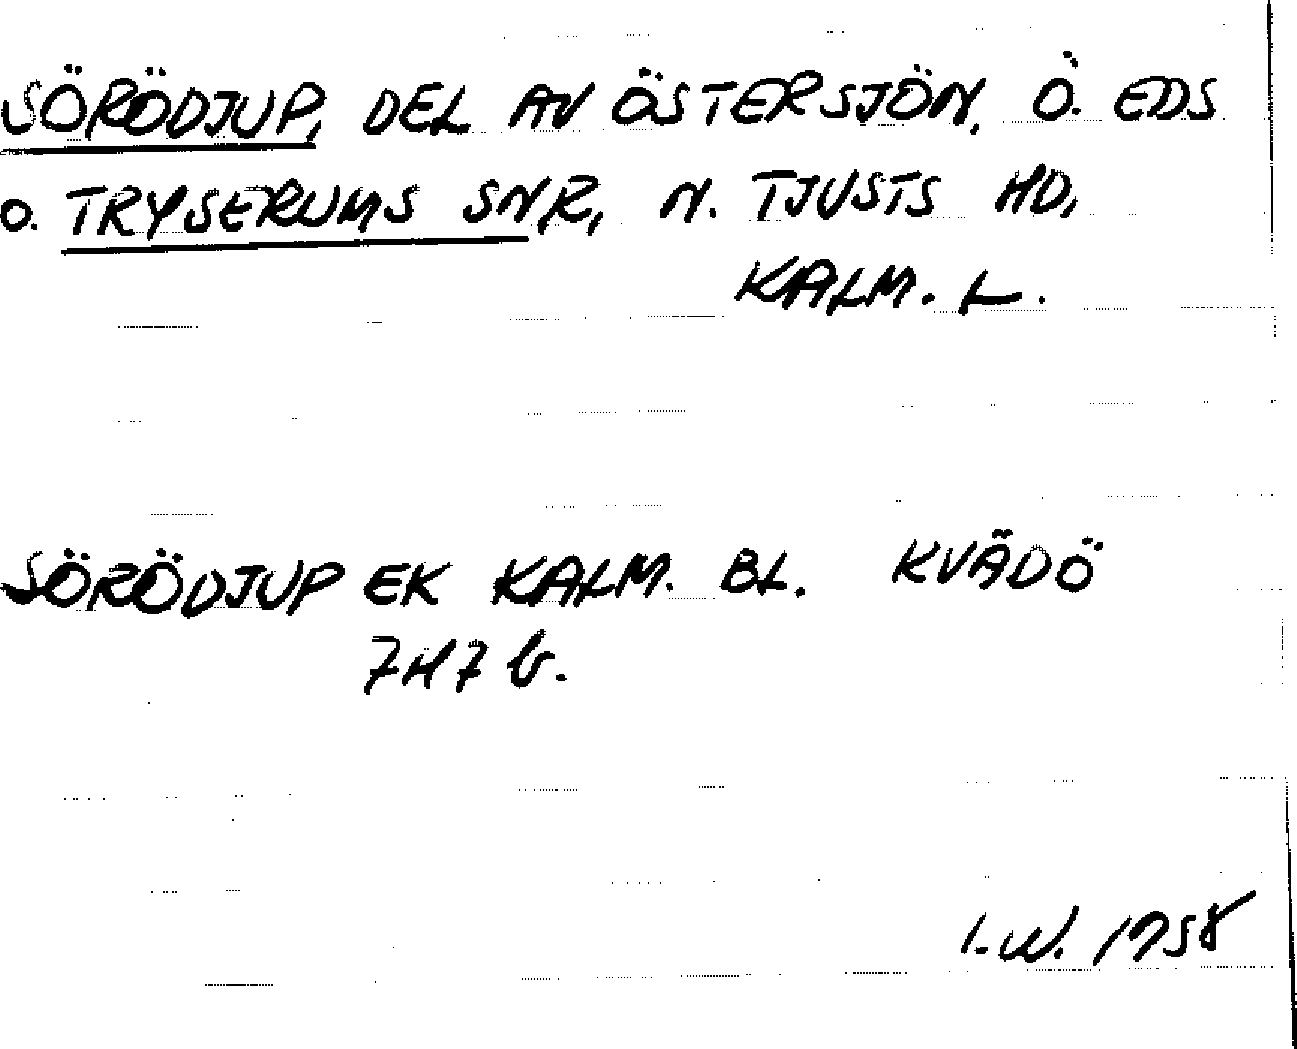 SÖRÖDJUP, DEL AV ÖSTERSJÖN, Ö. EDS
O. TRYSERUMS SNR, N. TJUSTS HD,
KALM. L.
SÖRÖDJUP EK KALM. BL. KVÄDÖ
7H7 b.
I.W. 1958